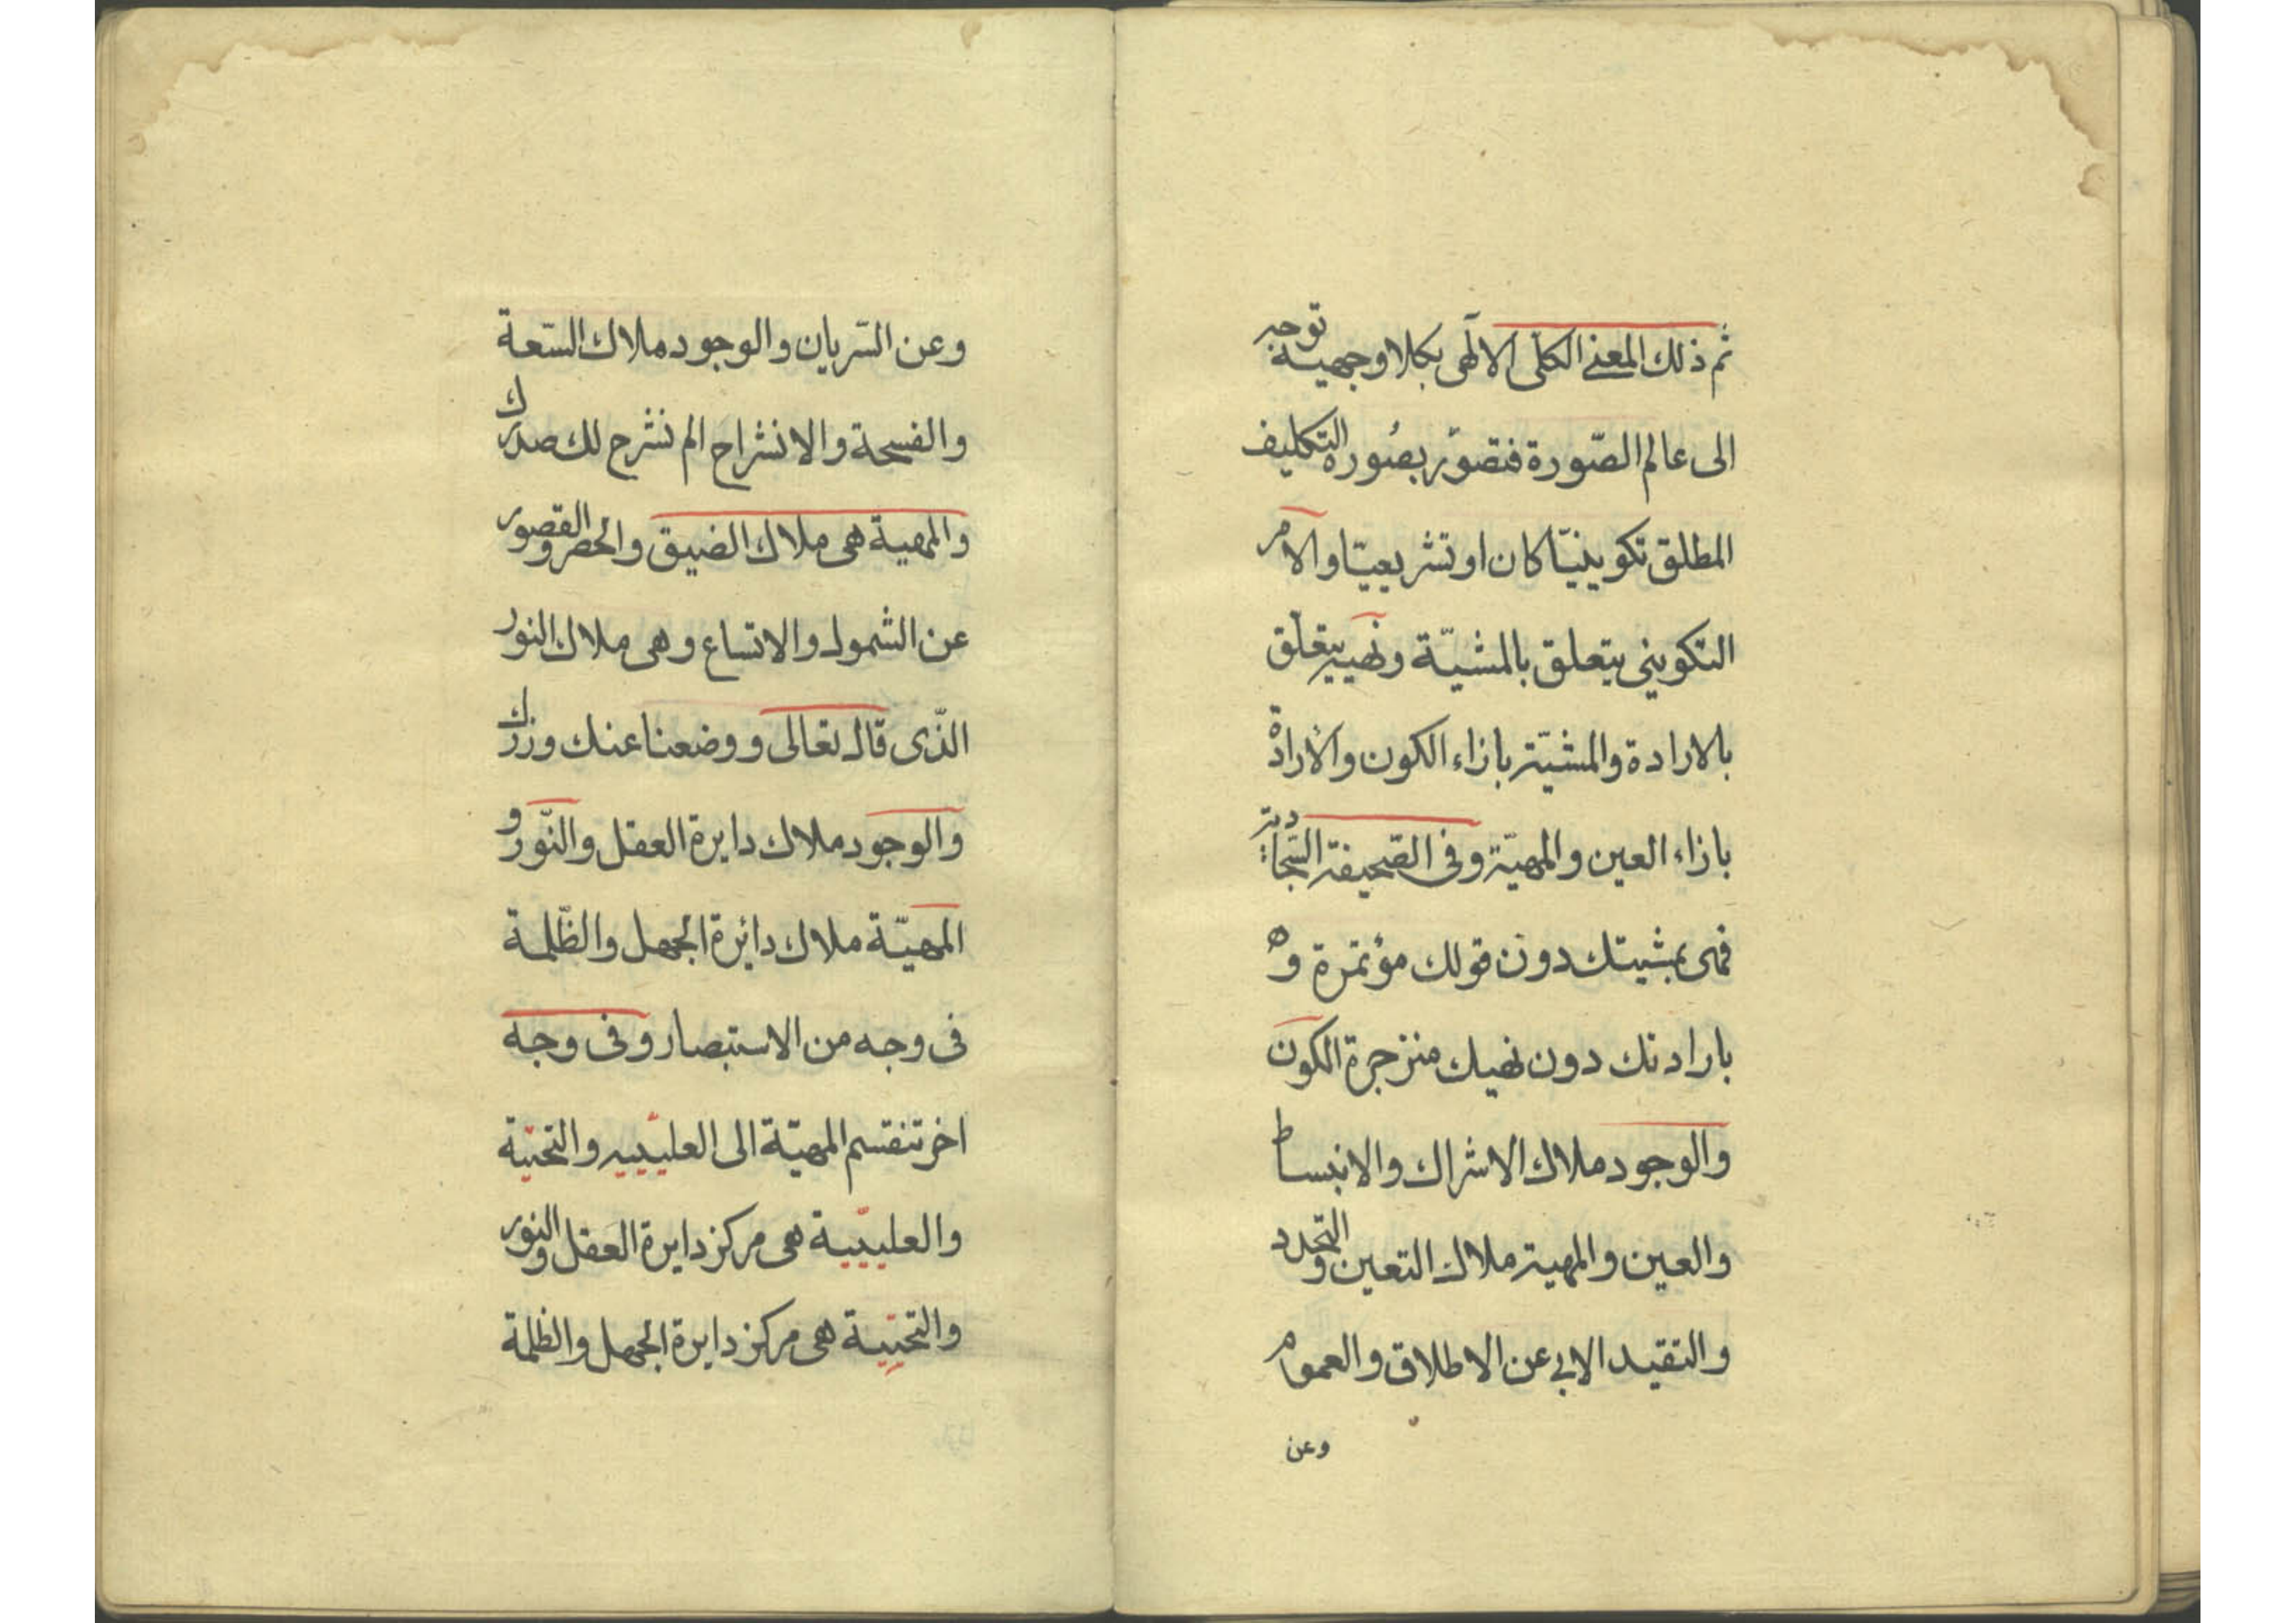 ثم ذلك المعنى الكلى الالٓهى بكلا وجهيه توجه
الى عالم الصّورة فتصوّر بصُورة التكليف
المطلق تكوينيّا كان او تشريعيّا والامر
التكوينى يتعلق بالمشيّة ونهيه يتعلّق
بالارادة والمشيّة بازاء الكون والارادة
بازاء العين والمهيّة وفى الصّحيفة السّجادية
فهى بمشيتك دون قولك مؤتمرة و
بارادتك دون نهيك منزجرة الكون
والوجود ملاك الاشراك والانبساط
والعين والمهية ملاك التعين والتحدد
والتقيد الابى عن الاطلاق والعموم
وعن
وعن السّريان والوجود ملاك السّعة
والفسحة والانشراح الم نشرح لك صدرك
والمهية هى ملاك الضيق والحصر والقصور
عن الشمول والاتساع وهى ملاك النور
الذّى قال تعالى ووضعنا عنك وزرك
والوجود ملاك دايرة العقل والنّور و
المهيّة ملاك دائرة الجهل والظّلمة
فى وجه من الاستبصار وفى وجه
اخر تنقسم المهيّة الى العليّيية والتحتيّة
والعليّيية هى مركز دايرة العقل والنور
والتحتيّة هى مركز دايرة الجهل والظلمة